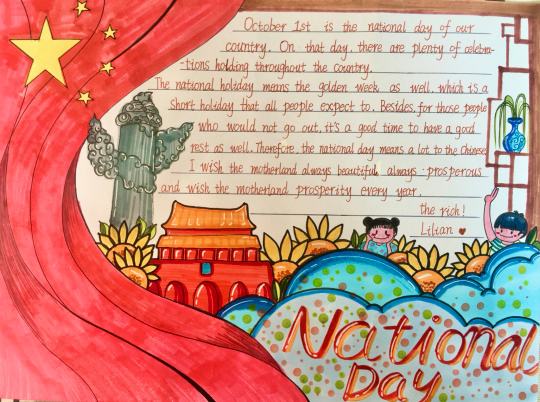 October 1st is the national day of our
country. On that day, there are plenty of celebra-
-tions holding throughout the country.
The national holiday means the golden week as well, which is a
short holiday that all people expect to. Besides, for those people
who would not go out, it's a good time to have a good
rest as well. Therefore, the national day means a lot to the Chinese
I wish the motherland always beautiful always prosperous
and wish the motherland prosperity every year.
the rich!
Lilian
National
Day